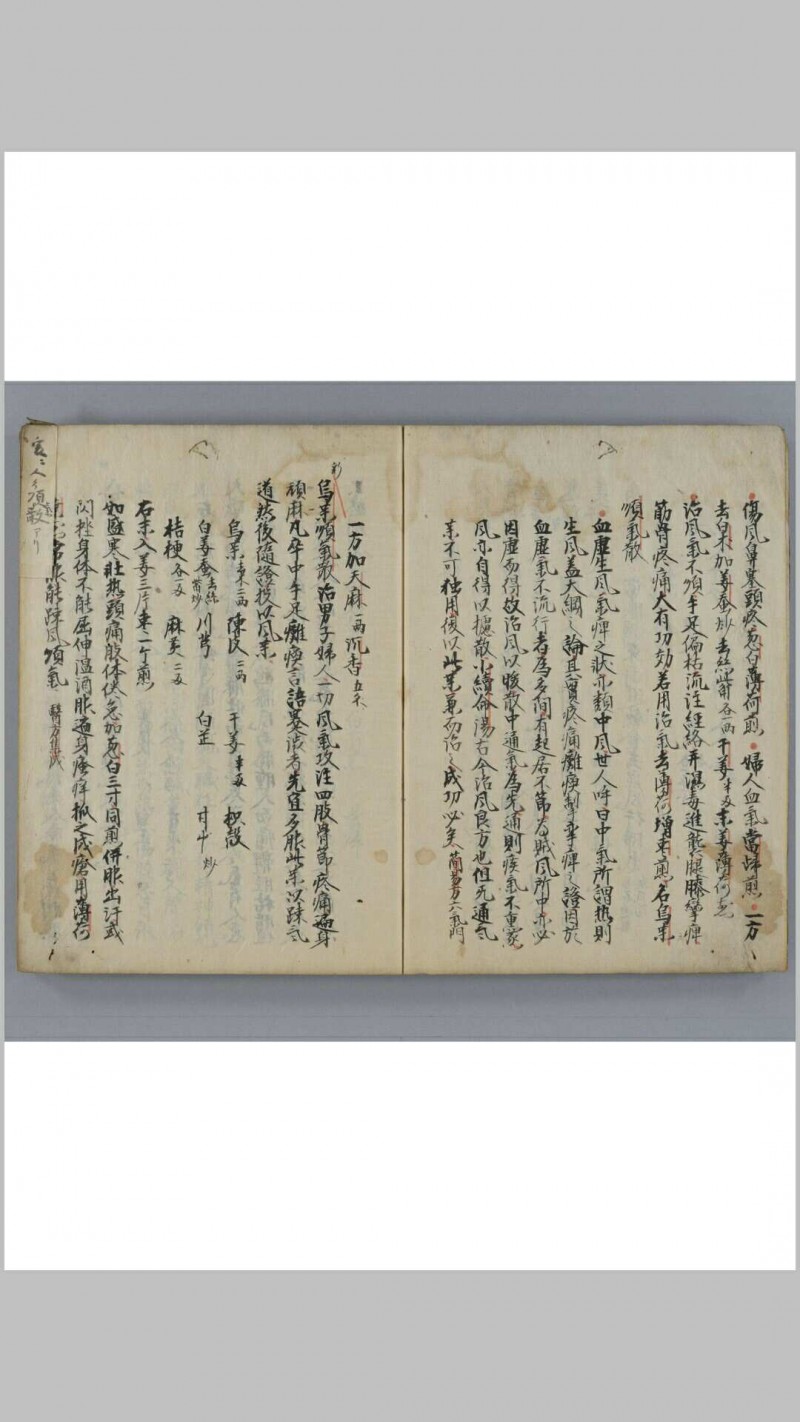 傷風鼻塞頭疼葱白薄荷煎・婦人血氣當歸煎・一方
去白朮加姜蚕炒去絲觜各一兩干姜半兩末姜薄荷
治風氣不順手足偏枯流注経絡并濕毒進襲腿膝攣痺
筋骨疼痛大有功効若用治氣去薄荷増棗煎名烏薬
順氣散
血虚生風氣痺之状亦類中風世人呼曰中氣所謂熱則
生風盖大綱之論且冒疼痛癱瘓掣攣痺之證因於
血虚氣不流行者為多間有起居不節為賊風所中亦必
因虚而得故治風以駿散中通氣為先通則疾氣不重家
風亦自得以擺散小續命湯古今治風良方也但无通氣
薬不可独用便以此薬兼而治之成功必矣 簡易方六氣門
一方加天麻一兩沉香五
烏薬順氣散治男子婦人一切風氣攻注四肢骨節疼痛遍身
頑麻凡卒中手足癱瘓言語蹇渋者先宜多服此薬以疎氣
道然後随證投以風薬
烏薬去木二兩 陳皮二兩 干姜半兩 枳殻
白姜蚕去絲觜炒 川芎 白芷 甘草炒
桔梗各一兩 麻黄二兩
右末入姜三片棗一ヶ煎
如感寒壮熱頭痛肢体倦怠加葱白三寸同煎併服出汗或
閃挫身体不能屈伸温酒服遍身瘙痒抓之成瘡用薄荷
煎常服能疎風順氣 醫方集成
順散アリ